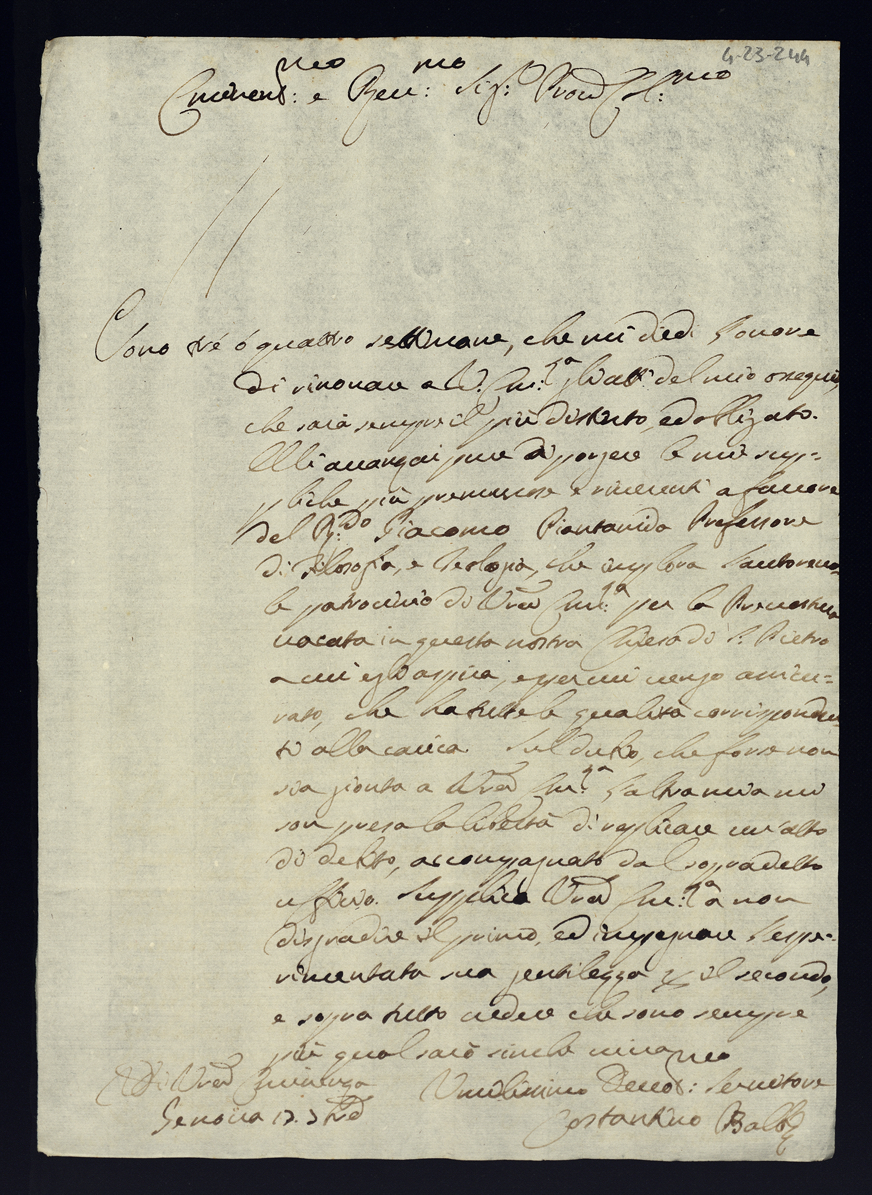 4-23-244
Eminent:mo e Rev:mo Sig:r Pron Col:mo
Sono trè ò quattro settimane, che mi diedi l'onore
di rinovare a V. Em:za gl'atti del mio ossequio,
che sarà sempre il più distinto, ed obligato.
Gli avanzai pure di porgere le mie sup=
pliche più premurose e riverenti a favore
del R:do Giacomo Piantanida Professore
di Filosofia, e Teologia, che implora l'autorevo
le patrocinio di Vra Em:za per la
vacata in questa nostra Chiesa di S. Pietro
a cui egli aspira, e per cui vengo assicu=
rato, che ha tutte le qualità corrisponden
ti alla carica. Sul dubio, che forse non
sia gionta a Vra Em:za l'altra mia mi
son presa la libertà di replicare un'atto
di debito, accompagnato dal sopradetto
uffizio. Supplico Vra Em:za a non
disgradire il primo, ed impegnare l'espe=
rimentata sua gentilezza per il secondo,
e sopra tutto credere che sono sempre
più qual sarò sin che viva
Di Vra Eminenza
Umilissimo Devot:mo Servitore
Genova 17.
Costantino Balbi